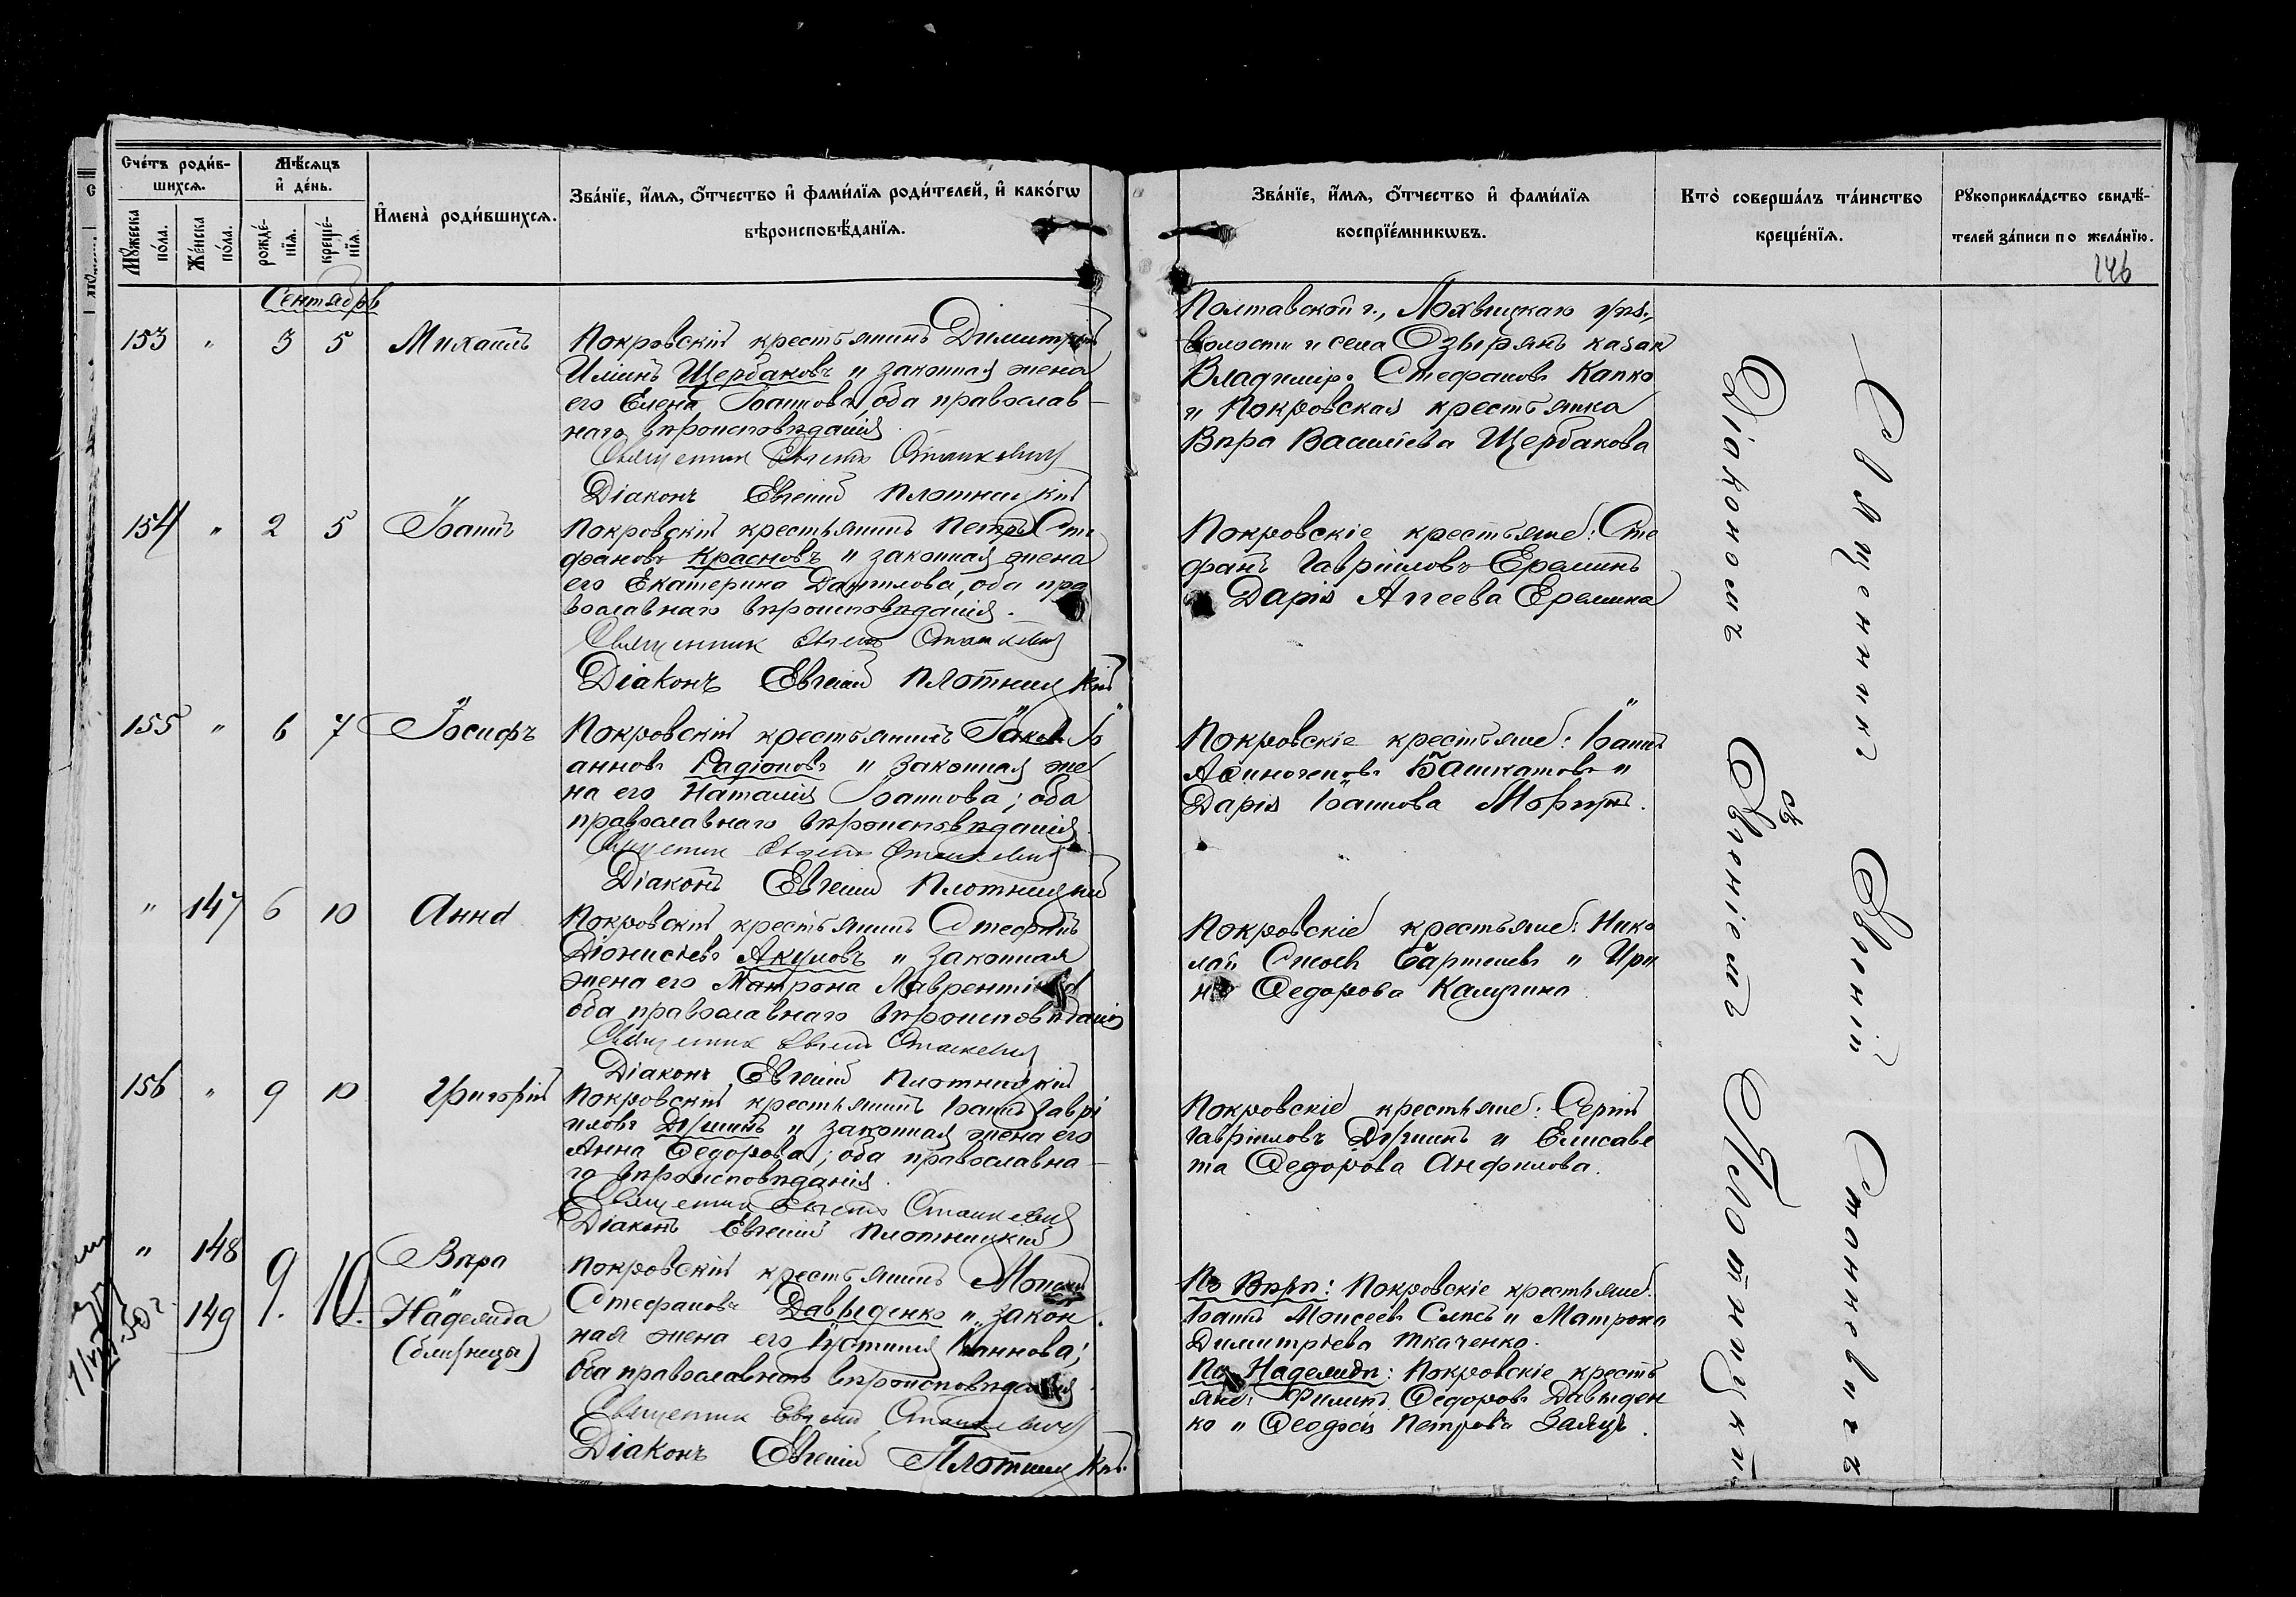 Сче́тъ роди́в-
шихсѧ.
Мѣ́сяцъ
и҆ де́нь.
И҆мена̀ роди́вшихсѧ.
Зва́нїе, и҆́мѧ, ѻ҆́тчество и҆ фами́лїѧ роди́телей, и҆ како́гѡ
вѣроисповѣ́данїѧ.
Мꙋ́жеска
по́ла.
Же́нска
по́ла.
рожде́-
нїѧ.
креще́-
нїѧ.
Зва́нїе, и҆́мѧ, ѻ҆́тчество и҆ фами́лїѧ
воспрїе́мникѡвъ.
Кто̀ соверша́лъ та́инство
креще́нїѧ.
Рꙋкоприкла́дство свидѣ́-
телей за́писи по жела́нїю.
146
Сентябрь
153 " 3 5 Михаилъ
Покровскій крестьянинъ Димитрій
Ильинъ Щербаковъ и законная жена
его Елена Іоаннова, оба православ-
наго вѣроисповѣданія.
Священник Евгеній Станкевич
Діаконъ Евгеній Плотницкій
Полтавской г., Лохвицкаго уѣз.,
волости и села Озырянъ казак
Владимір Стефановъ Капко
и Покровская крестьянка
Вѣра Васильева Щербакова
154 " 2 5 Іоаннъ
Покровскій крестьянинъ Петръ Сте
фановъ Красновъ и законная жена
его Екатерина Даніилова, оба пра
вославнаго вѣроисповѣданія.
Священник Евгеній Станкевич
Діаконъ Евгеній Плотницкій
Покровскіе крестьяне: Сте
фанъ Гавріиловъ Ереминъ
Дарія Еремина
155 " 6 7 Іосифъ
Покровскій крестьянинъ Іаков Іо
анновъ Радіоновъ и законная же
на его Наталія Іоаннова; оба
православнаго вѣроисповѣданія
Священник Евгеній Станкевич
Діаконъ Евгеній Плотницкій
Покровскіе крестьяне: Іоаннъ
Афиногеновъ Башкатовъ и
Дарія Іоаннова
" 147 6 10 Анна
Покровскій крестьянинъ Стефанъ
Діонисіевъ Акуловъ и законная
жена его Матрона Лаврентіева
оба православнаго вѣроисповѣданія
Священник Евгеній Станкевич
Діаконъ Евгеній Плотницкій
Покровскіе крестьяне: Нико
лай Бартеневъ и Ири
на Федорова Калугина
156 " 9 10 Григорій
Покровскій крестьянинъ Іоаннъ Гаврі
иловъ и законная жена его
Анна Федорова; оба православна-
го вѣроисповѣданія.
Священник Евгеній Станкевич
Діаконъ Евгеній Плотницкій
Покровскіе крестьяне: Сергій
Гавріиловъ и Елисаве
та Федорова Анфилова.
" 148 Вѣра
149 9. 10. Надежда
(близнецы)
Покровскій крестьянинъ Моисей
Стефановъ Давыденко и закон
ная жена его Іустинія Іоаннова;
оба православнаго вѣроисповѣданія.
Священник Евгеній Станкевич
Діаконъ Евгеній Плотницкій.
По Вѣрѣ: Покровскіе крестьяне:
Іоаннъ Моисеевъ и Матрона
Димитріева Ткаченко.
По Надеждѣ: Покровскіе кресть
яне: Филиппъ Федоровъ Давыден
ко и Петрова Заяцъ.
Священникъ Евгеній Станкевичъ
съ
Діакономъ Евгеніемъ Плотницкимъ